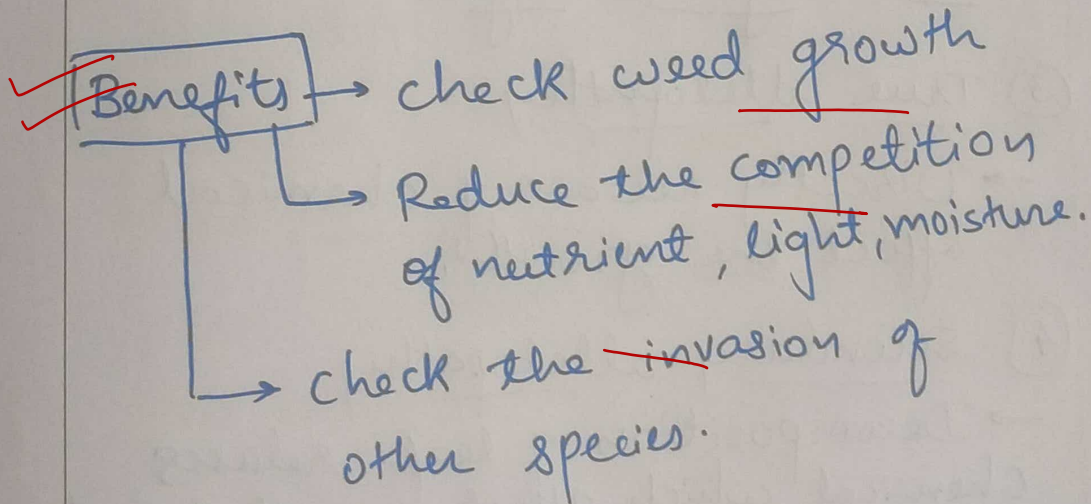 Benefits → Check weed growth
→ Reduce the competition
of nutrient, light, moisture.
→ Check the invasion of
other species.